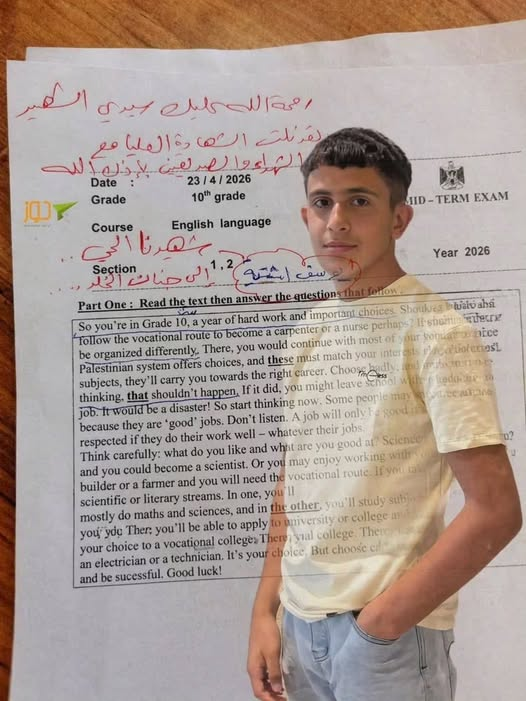 رحمة الله عليك سيدي الشهيد
لقد نلت الشهادة العليا مع
الشهداء والصديقين بإذن الله
Date : 23 / 4 / 2026
Grade 10th grade
MID – TERM EXAM
Course English language
شهيدنا الحي ..
Year 2026
Section 1 , 2
يوسف اشتية
إلى جنات الخلد ..
Part One : Read the text then answer the questions that follow .
So you're in Grade 10, a year of hard work and important choices. Should
follow the vocational route to become a carpenter or a nurse perhaps? It
be organized differently. There, you would continue with most of your
Palestinian system offers choices, and these must match your interests
subjects, they'll carry you towards the right career. Choose badly, and
thinking, that shouldn't happen. If it did, you might leave school
job. It would be a disaster! So start thinking now. Some people may
because they are 'good' jobs. Don't listen. A job will only be good
respected if they do their work well – whatever their jobs.
Think carefully: what do you like and what are you good at? Science
and you could become a scientist. Or you may enjoy working with
builder or a farmer and you will need the vocational route. If you
scientific or literary streams. In one, you'll
mostly do maths and sciences, and in the other, you'll study
you'll be able to apply to university or college and
your choice to a vocational college.
an electrician or a technician. It's your choice. But choose
and be sucessful. Good luck!